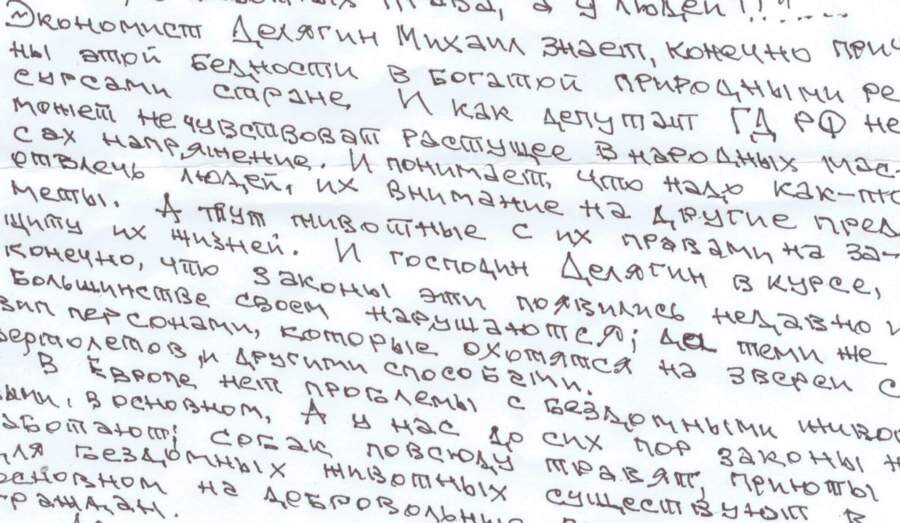 права, а у людей!!!......
Экономист Делягин Михаил знает, конечно прич
ны этой бедности в богатой природными ре
сурсами стране. И как депутат ГД РФ не
может не чувствоват растущее в народных мас-
сах напряжение. И понимает, что надо как-то
отвлечь людей, их внимание на другие пред
меты. А тут животные с их правами на за-
щиту их жизней. И господин Делягин в курсе,
конечно, что законы эти появились недавно и
большинстве своем нарушаются; да теми же
вип персонами, которые охотятся на зверей с
вертолетов и другими способами.
В Европе нет проблемы с бездомными живо
ными, в основном, А у нас до сих пор законы н
аботают; собак повсюду травят, приюты
для бездомных животных существуют в
основном на добровольные
граждан.